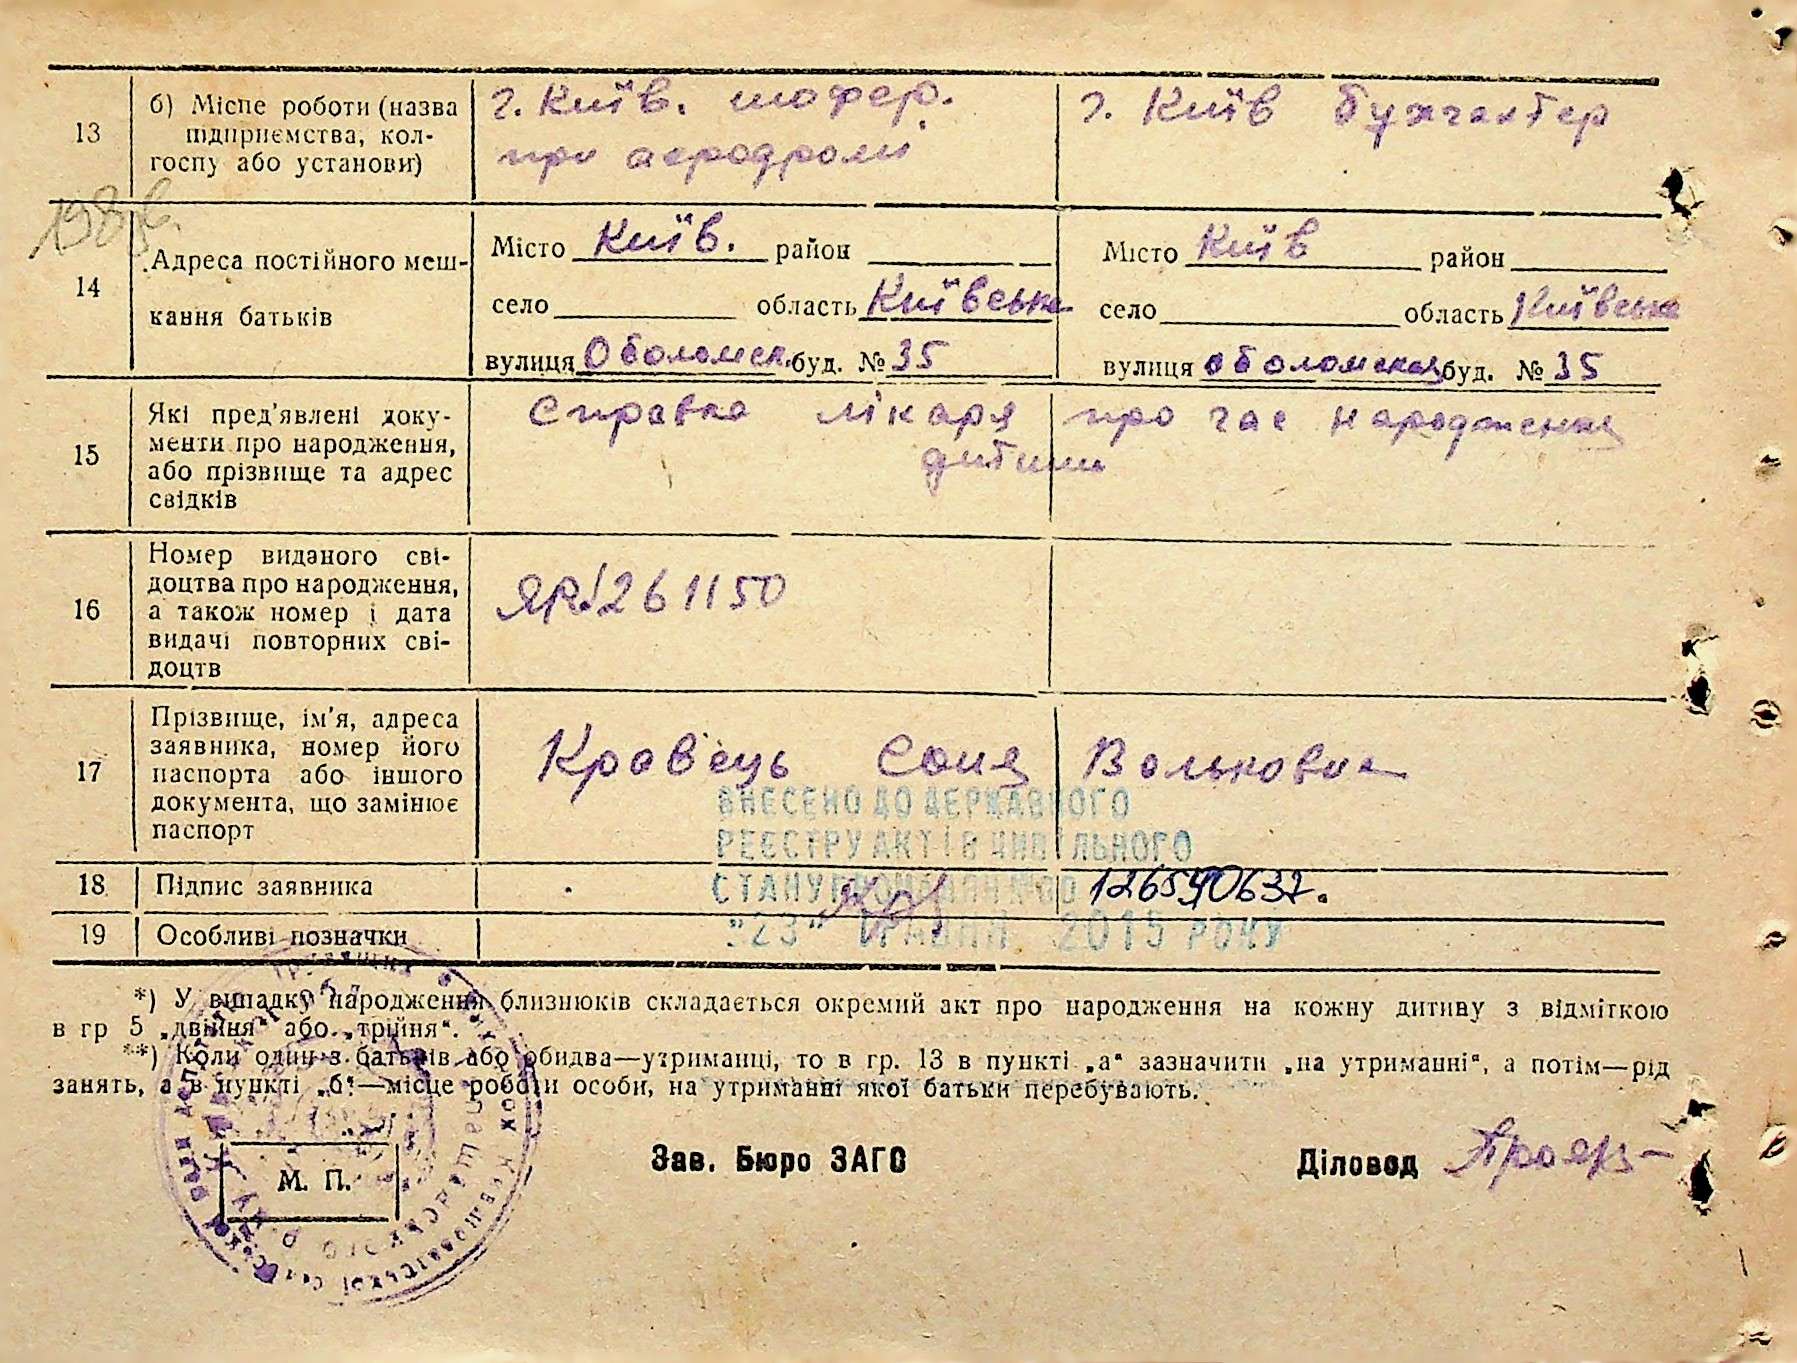 13
б) Місце роботи (назва
підприємства, кол-
госпу або установи)
г. Київ. шофер.
при аеродромі
г. Київ бухгалтер
14
Адреса постійного меш-
кання батьків
Місто Київ. район
село область Київська
вулиця Оболонск. буд. № 35
Місто Київ район
село область Київська
вулиця оболонская буд. № 35
15
Які пред'явлені доку-
менти про народження,
або прізвище та адрес
свідків
Справка лікаря про час народження
дитини
16
Номер виданого сві-
доцтва про народження,
а також номер і дата
видачі повторних сві-
доцтв
261150
17
Прізвище, ім'я, адреса
заявника, номер його
паспорта або іншого
документа, що замінює
паспорт
Кравець Соня Вольковна
ВНЕСЕНО ДО ДЕРЖАВНОГО
РЕЄСТРУ АКТІВ ЦИВІЛЬНОГО
СТАНУ ГРОМАДЯН
18
Підпис заявника
"23" ТРАВНЯ 2015 РОКУ
19
Особливі позначки
*) У випадку народження близнюків складається окремий акт про народження на кожну дитину з відміткою
в гр 5 „двійня“ або „трійня“.
**) Коли один з батьків або обидва—утриманці, то в гр. 13 в пункті „а“ зазначити „на утриманні“, а потім—рід
занять, а в пункті „б“—місце роботи особи, на утриманні якої батьки перебувають.
М. П.
Зав. Бюро ЗАГС
Діловод